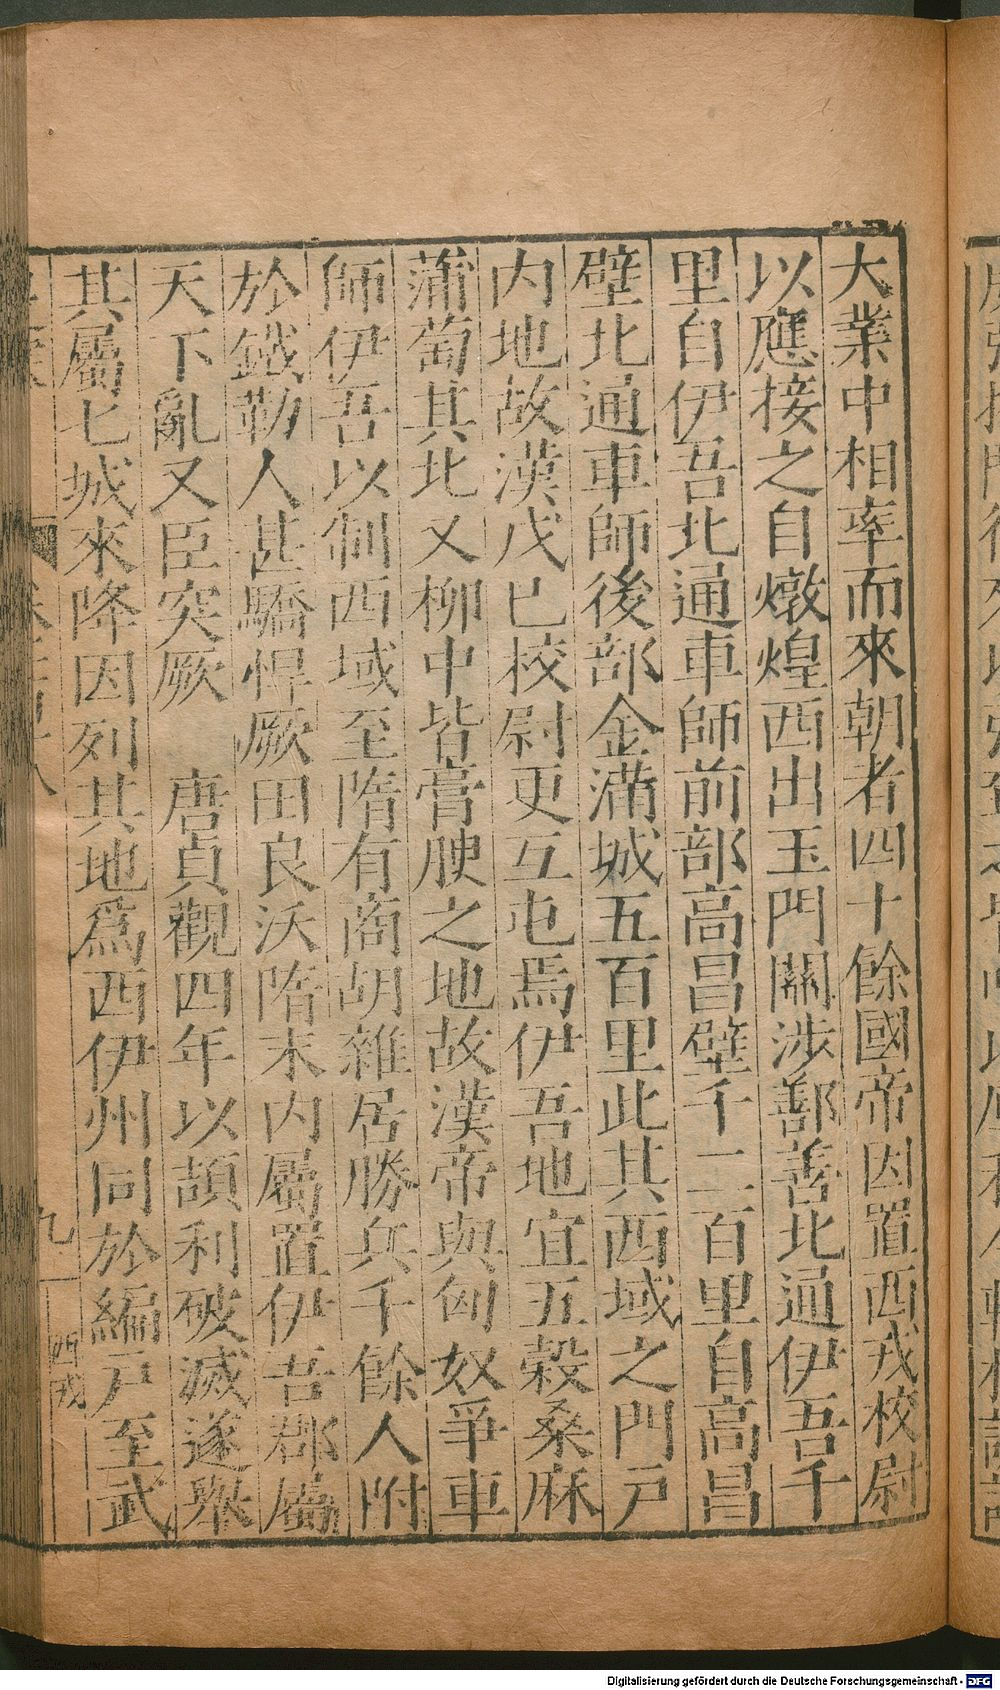 大業中相率而來朝者四十餘國帝因置西戎校尉
以應接之自燉煌西出玉門關涉鄯善北通伊吾千
里自伊吾北通車師前部高昌壁千二百里自高昌
壁北通車師後部金滿城五百里此其西域之門戶
內地故漢戊巳校尉更互屯焉伊吾地宜五穀桑麻
蒲萄其北又柳中皆膏腴之地故漢帝與匈奴爭車
師伊吾以制西域至隋有商胡雜居勝兵千餘人附
於鐵勒人甚驕悍厥田良沃隋末內屬置伊吾郡屬
天下亂又臣突厥 唐貞觀四年以頡利破滅遂舉
其屬七城來降因列其地爲西伊州同於編戶至武
九
西戎
Digitalisierung gefördert durch die Deutsche Forschungsgemeinschaft - DFG